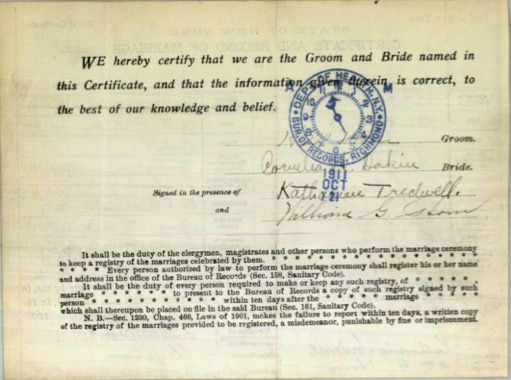 WE hereby certify that we are the Groom and Bride named in
this Certificate, and that the information given therein is correct, to
the best of our knowledge and belief.
DEPT. OF HEALTH, N.Y.
BUR. OF RECORDS, RICHMOND
A M
Groom.
Cornelia Dakin Bride.
1911
OCT
21
Signed in the presence of
and
Katharine Tredwell.
William G.
It shall be the duty of the clergymen, magistrates and other persons who perform the marriage ceremony
to keep a registry of the marriages celebrated by them. * * * * * * * * * * * *
* * * * Every person authorized by law to perform the marriage ceremony shall register his or her name
and address in the office of the Bureau of Records (Sec. 158, Sanitary Code).
It shall be the duty of every person required to make or keep any such registry, of * * * * * *
marriage * * * * * to present to the Bureau of Records a copy of such registry signed by such
person * * * * * * * * * * within ten days after the * * * * * marriage * * * *
which shall thereupon be placed on file in the said Bureau (Sec. 161, Sanitary Code).
N. B.—Sec. 1230, Chap. 466, Laws of 1901, makes the failure to report within ten days, a written copy
of the registry of the marriages provided to be registered, a misdemeanor, punishable by fine or imprisonment.